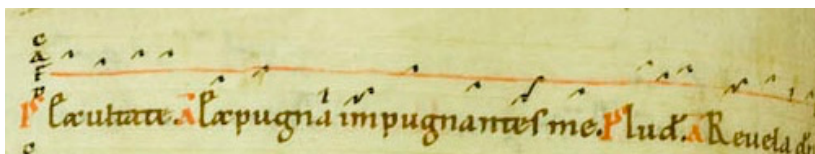 c
a
f
P Exultate. A Expugna impugnantes me. P Iud. A Revela